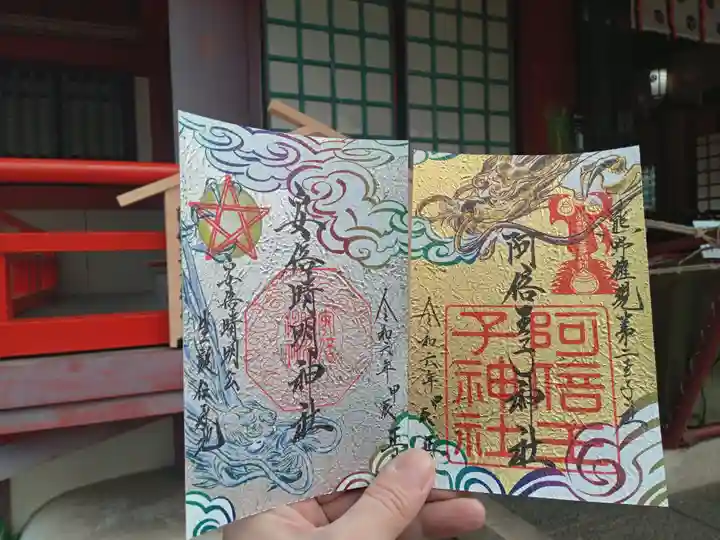 安倍晴明神社
安倍晴明公
生誕伝承地
令和六年 甲辰
熊野権現第二王子
阿倍王子神社
令和六年 甲辰
阿倍王子神社